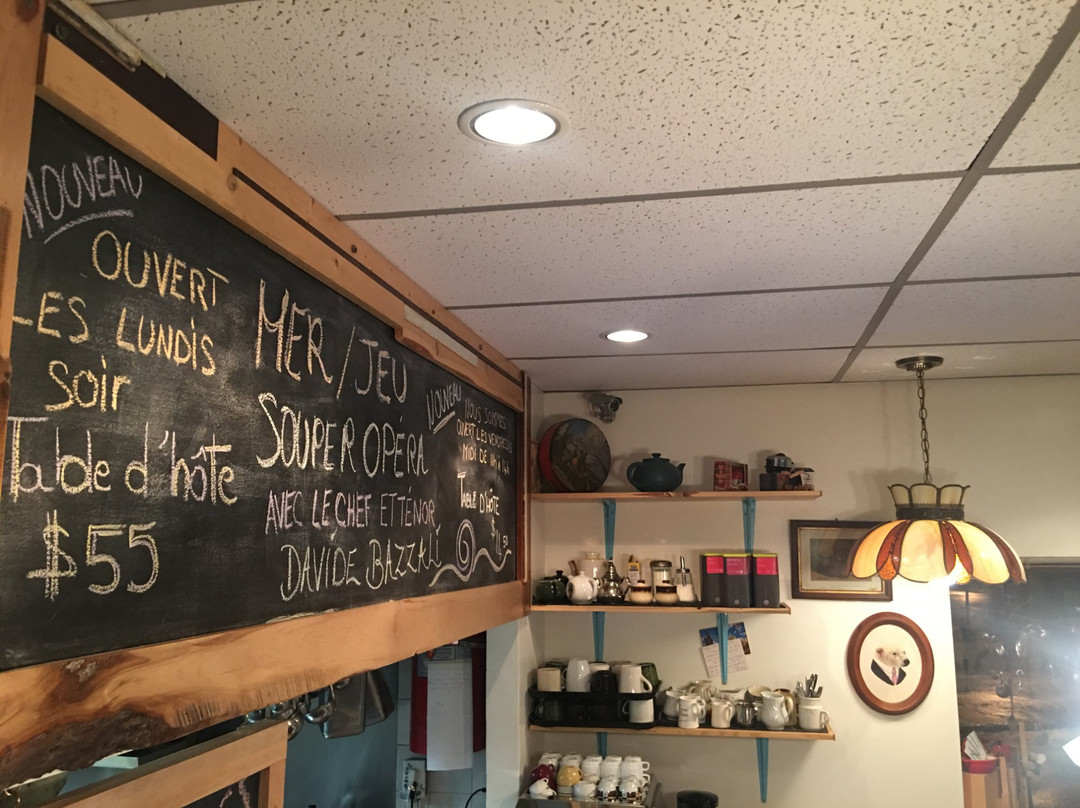 NOUVEAU
OUVERT
LES LUNDIS
SOIR
Table d'hôte
$55
MER/JEU
SOUPER OPÉRA
AVEC LE CHEF ET TÉNOR
DAVIDE BAZZALI
NOUVEAU
NOUS SOMMES
OUVERT LES VENDREDIS
MIDI DE
TABLE D'HÔTE